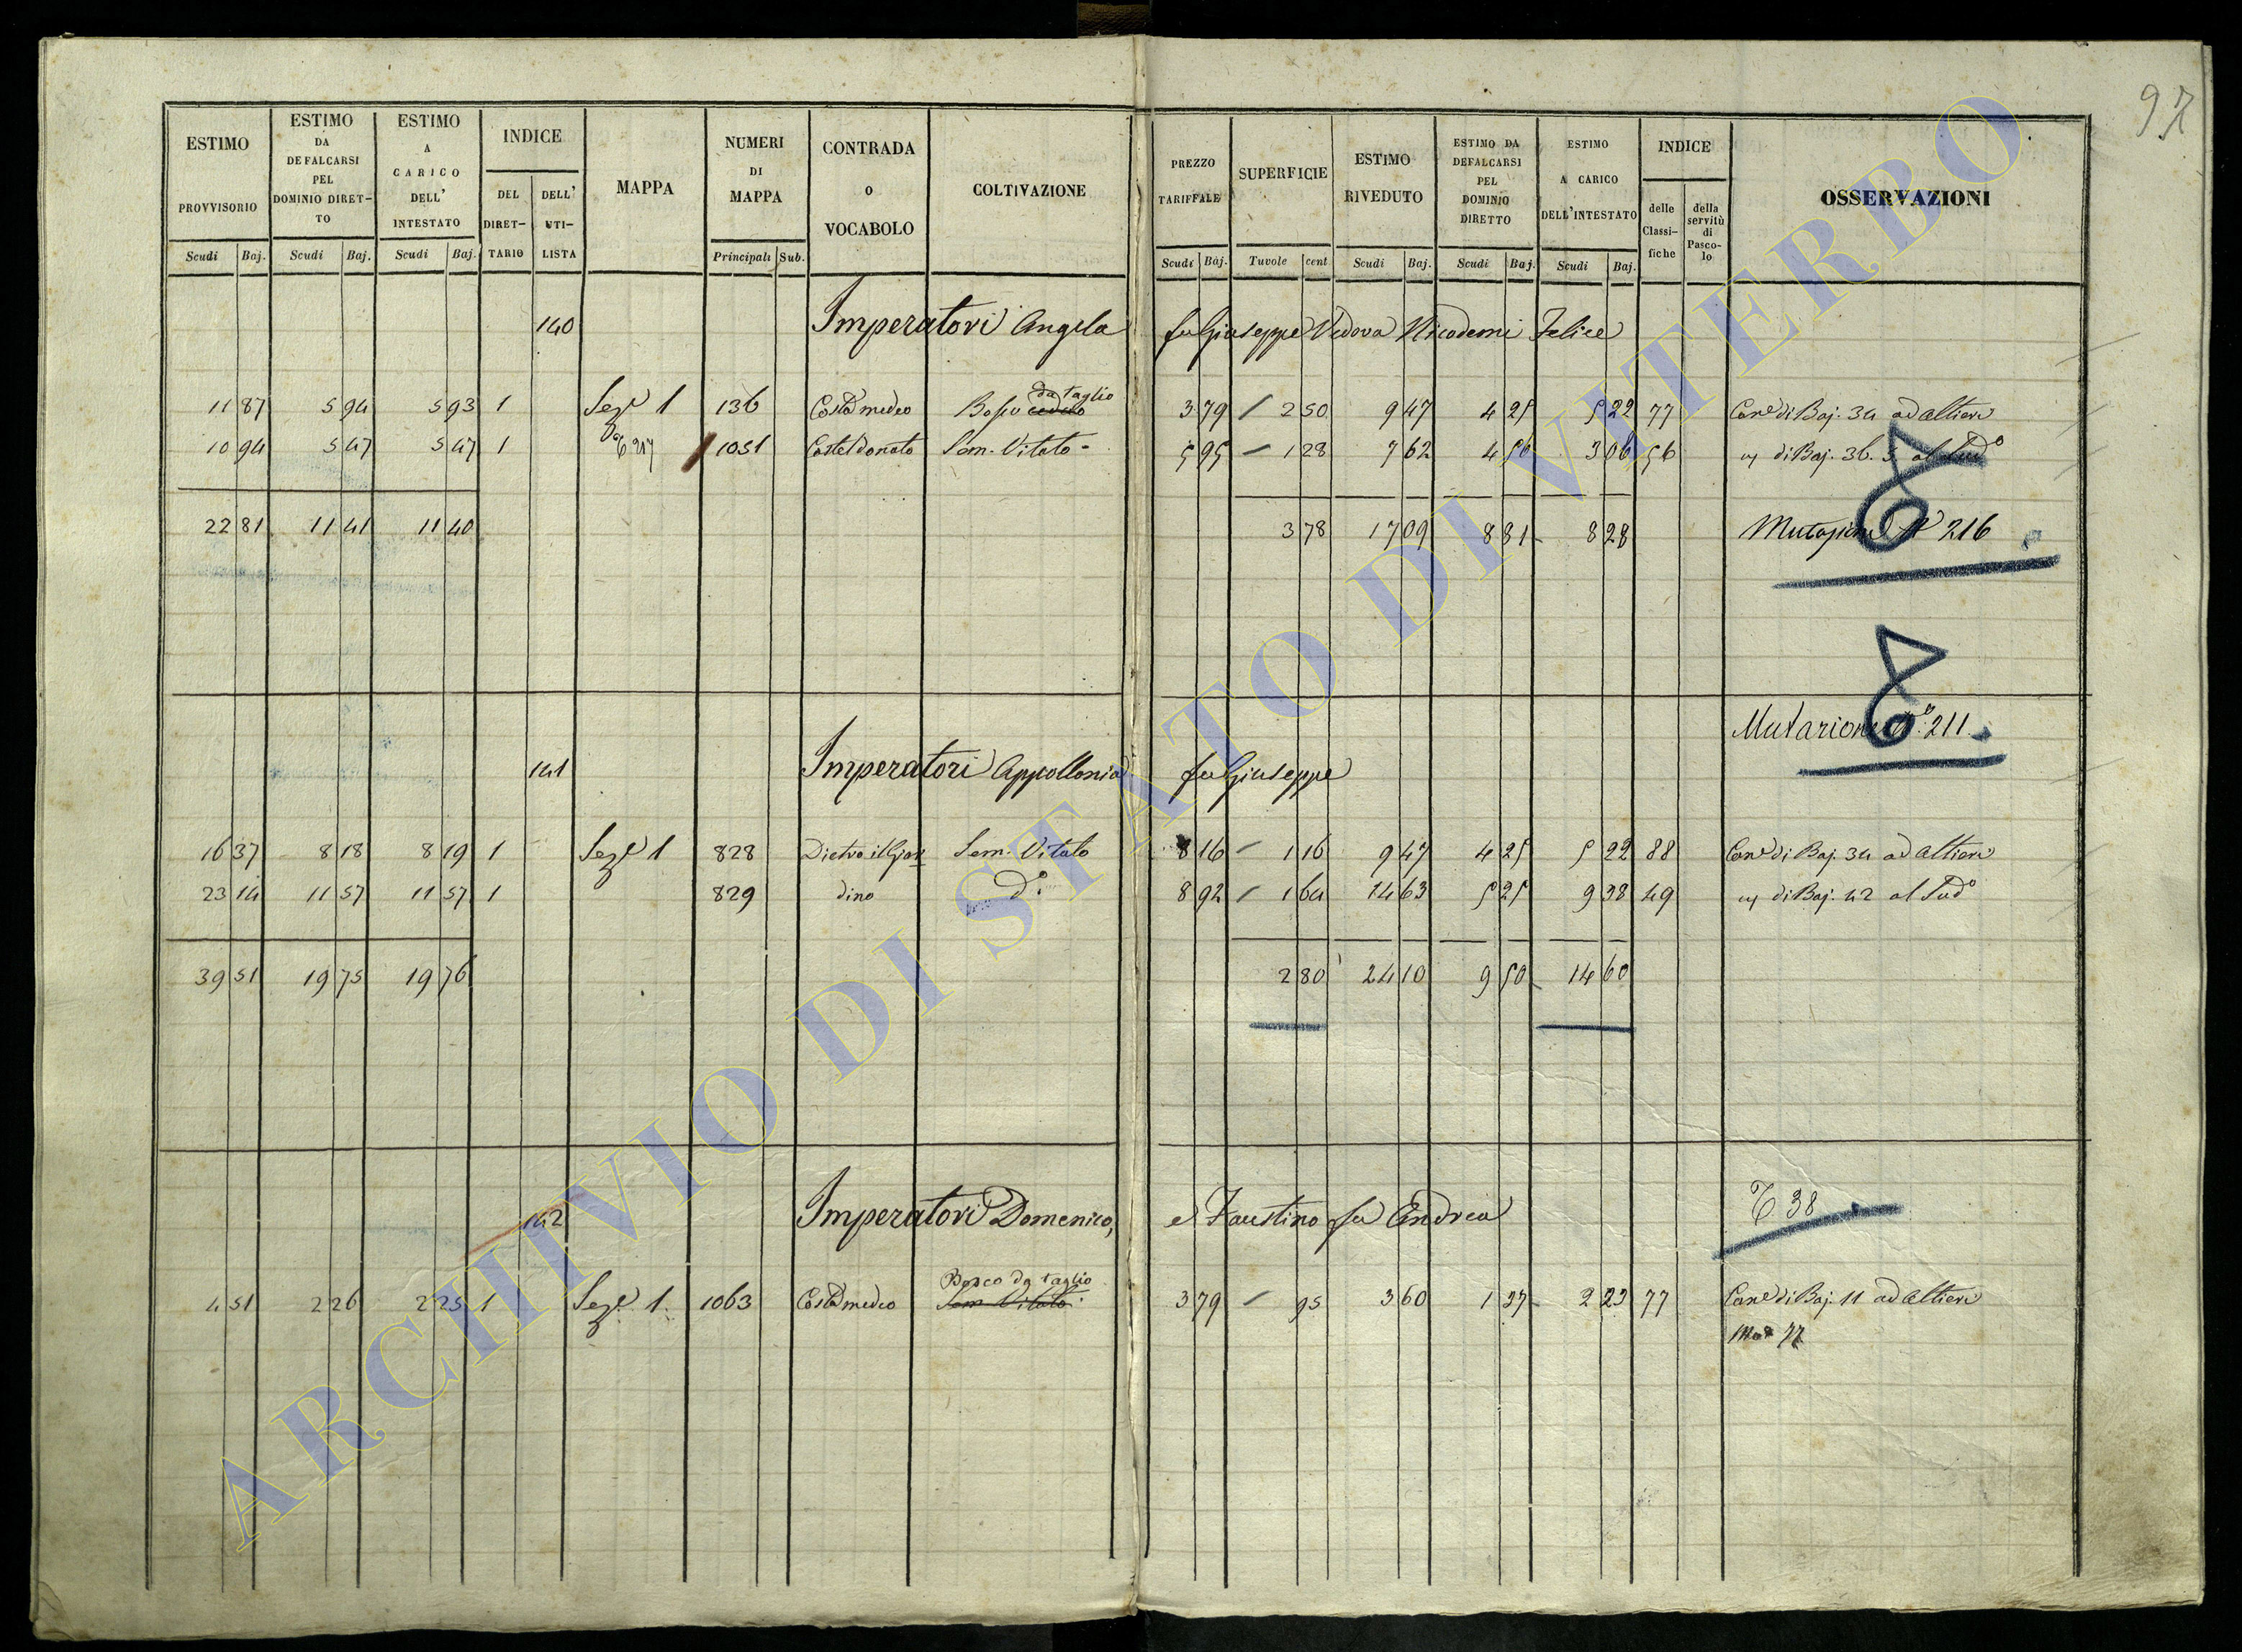 97
ESTIMO PROVVISORIO
ESTIMO DA DEFALCARSI PEL DOMINIO DIRET-TO
ESTIMO A CARICO DELL' INTESTATO
INDICE
DEL DIRET-TARIO
DELL' UTI-LISTA
MAPPA
NUMERI DI MAPPA
CONTRADA O VOCABOLO
COLTIVAZIONE
PREZZO TARIFFALE
SUPERFICIE
ESTIMO RIVEDUTO
ESTIMO DA DEFALCARSI PEL DOMINIO DIRETTO
ESTIMO A CARICO DELL'INTESTATO
INDICE
delle Classi-fiche
della servitù di Pasco-lo
OSSERVAZIONI
Scudi Baj. Scudi Baj. Scudi Baj. Principali Sub. Scudi Baj. Tuvole cent Scudi Baj. Scudi Baj. Scudi Baj.
140 Imperatori Angela fu Giuseppe Vedova Nicodemi Felice
da taglio
11 87 5 94 5 93 1 Sez.e 1 136 Costa medeo Bosco ceduo 3 79 / 2 50 9 47 4 25 5 22 77 Can.e di Baj. 34 ad Altieri
10 94 5 47 5 47 1 T 217 1051 Castel donato Sem. Vitato - 5 95 - 1 28 7 62 4 56 3 06 56 di Baj. 36. 5 al Sud.o
22 81 11 41 11 40 3 78 17 09 8 81 8 28 Mutazione N 216
Mutazione N.o 211.
141 Imperatori Appollonia fu Giuseppe
16 37 8 18 8 19 1 Sez.e 1 828 Dietro il Sem. Vitato 8 16 - 1 16 9 47 4 25 5 22 88 Can.e di Baj. 34 ad Altieri
23 14 11 57 11 57 1 829 dino d.o 8 92 / 1 64 14 63 5 25 9 38 49 di Baj. 42 al Sud.o
39 51 19 75 19 76 2 80 24 10 9 50 14 60
T 38
142 Imperatori Domenico, e Faustino fu Andrea
Bosco da taglio
4 51 2 26 2 25 1 Sez.e 1. 1063 Costa medeo Sem. Vitato 3 79 - 95 3 60 1 37 2 23 77 Can.e di Baj. 11 ad Altieri
ARCHIVIO DI STATO DI VITERBO